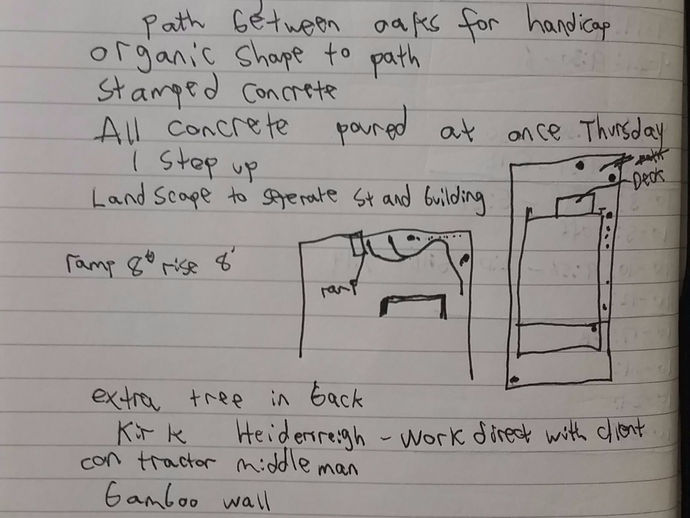 path between oaks for handicap
organic shape to path
Stamped concrete
All concrete poured at once Thursday
1 Step up
path
Deck
Landscape to seperate St and building
ramp 8" rise 8'
ramp
extra tree in back
Kirk Heidenreigh - Work direct with client
contractor middle man
Bamboo wall